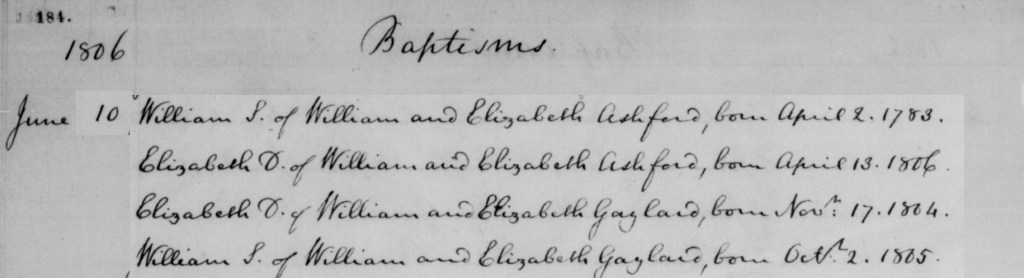 184.
1806 Baptisms.
June 10 William S. of William and Elizabeth Ashford, born April 2. 1783.
Elizabeth D. of William and Elizabeth Ashford, born April 13. 1806.
Elizabeth D. of William and Elizabeth Gaylard, born Novr. 17. 1804.
William S. of William and Elizabeth Gaylard, born Octr. 2. 1805.